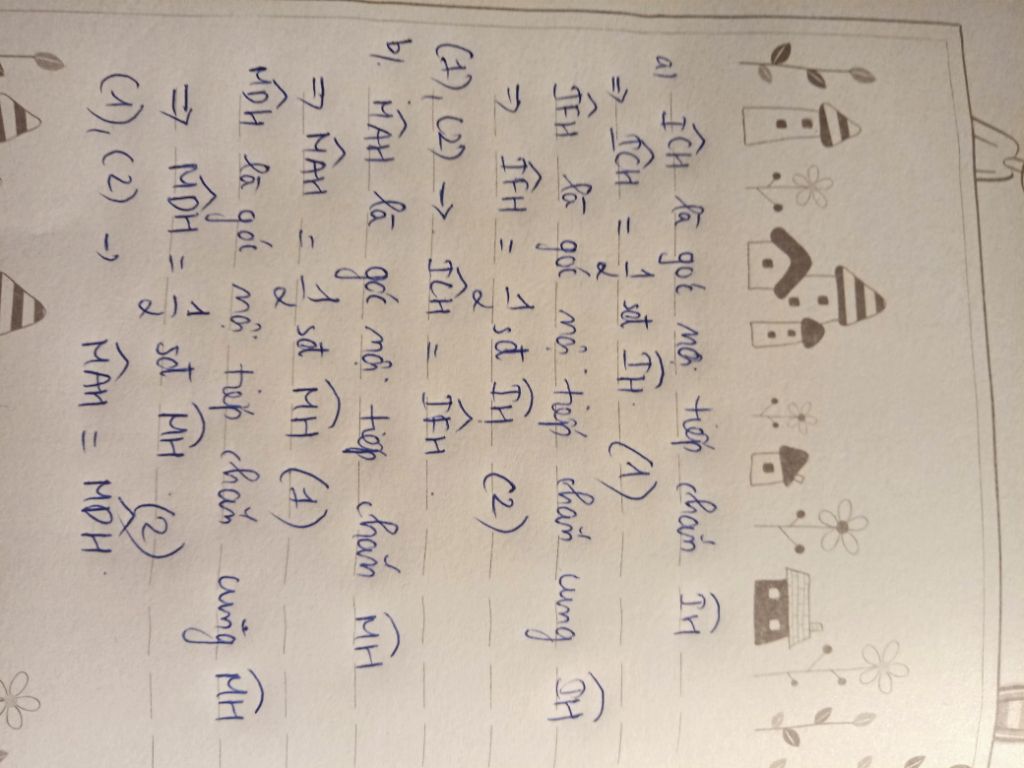 a) ICH là góc nội tiếp chắn IH
⇒ ICH = 1/2 sđ IH. (1)
IFH là góc nội tiếp chắn cung IH
⇒ IFH = 1/2 sđ IH (2)
(1), (2) → ICH = IFH.
b). MAH là góc nội tiếp chắn MH
⇒ MAH = 1/2 sđ MH (1)
MDH là góc nội tiếp chắn cung MH
⇒ MDH = 1/2 sđ MH. (2)
(1), (2) → MAH = MDH.